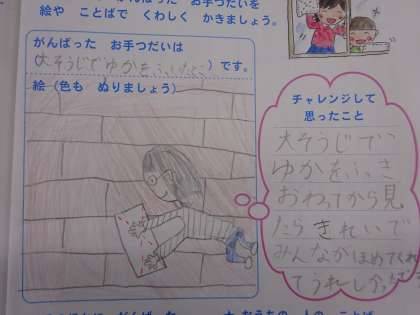 がんばった お手つだいを
絵や ことばで くわしく かきましょう。
がんばった お手つだいは
(大そうじでゆかをふいたこと)です。
絵(色も ぬりましょう)
チャレンジして
思ったこと
大そうじで
ゆかをふき
おわってから見
たらきれいで
みんながほめてくれ
てうれしかった